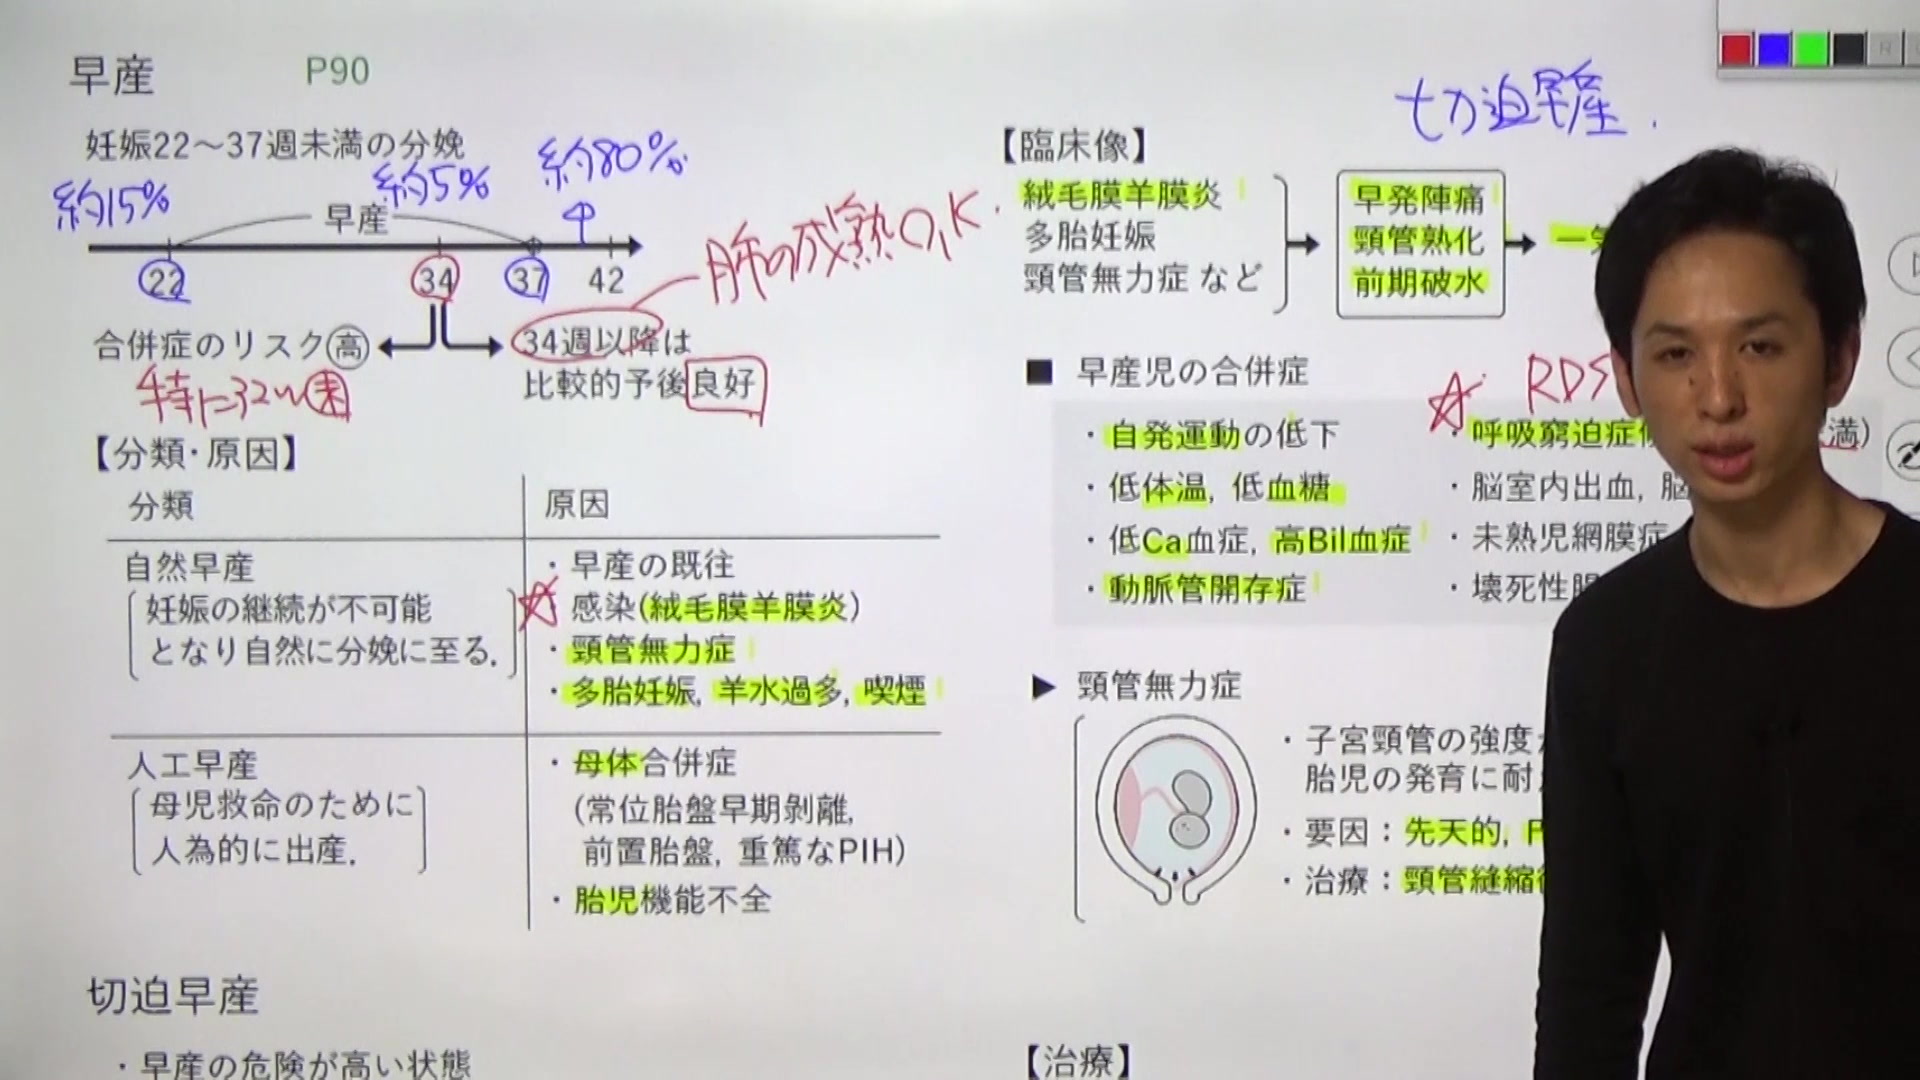 早産 P90
妊娠22〜37週未満の分娩
約15% 約5% 約80%
早産
22 34 37 42
肺の成熟O,K.
合併症のリスク高
特に32w未
34週以降は
比較的予後良好
【分類・原因】
分類 原因
自然早産
妊娠の継続が不可能
となり自然に分娩に至る.
・早産の既往
感染(絨毛膜羊膜炎)
・頸管無力症
・多胎妊娠, 羊水過多, 喫煙
人工早産
母児救命のために
人為的に出産.
・母体合併症
(常位胎盤早期剥離,
前置胎盤, 重篤なPIH)
・胎児機能不全
切迫早産
・早産の危険が高い状態
切迫早産.
【臨床像】
絨毛膜羊膜炎
多胎妊娠
頸管無力症 など
早発陣痛
頸管熟化
前期破水
■ 早産児の合併症
・自発運動の低下
・低体温, 低血糖
・低Ca血症, 高Bil血症
・動脈管開存症
RDS
・呼吸窮迫症 満)
・脳室内出血, 脳
・未熟児網膜症
・壊死性腸
▶ 頸管無力症
・子宮頸管の強度
胎児の発育に耐
・要因：先天的,
・治療：頸管縫縮
【治療】